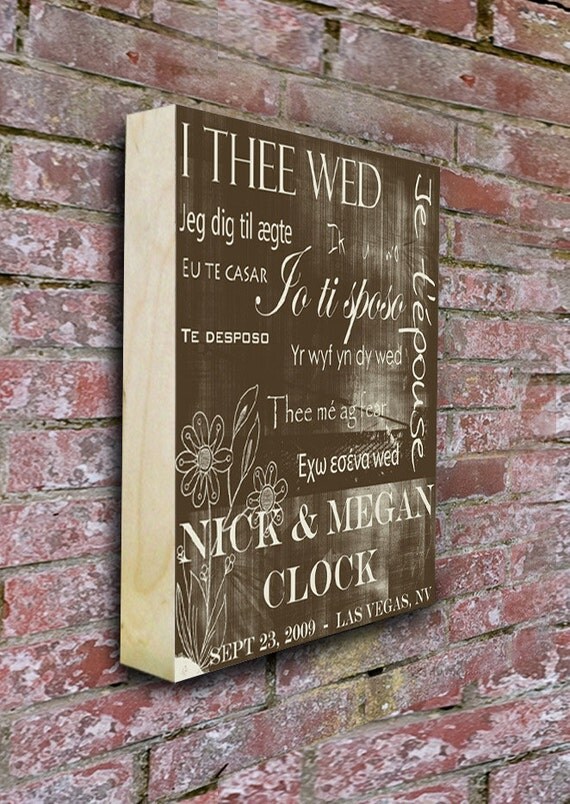 I THEE WED
Jeg dig til ægte
Ik u wo
EU TE CASAR
Io ti sposo
Je t'épouse
TE DESPOSO
Yr wyf yn dy wed
Thee mé ag fear
Έχω εσένα wed
NICK & MEGAN
CLOCK
SEPT 23, 2009 - LAS VEGAS, NV